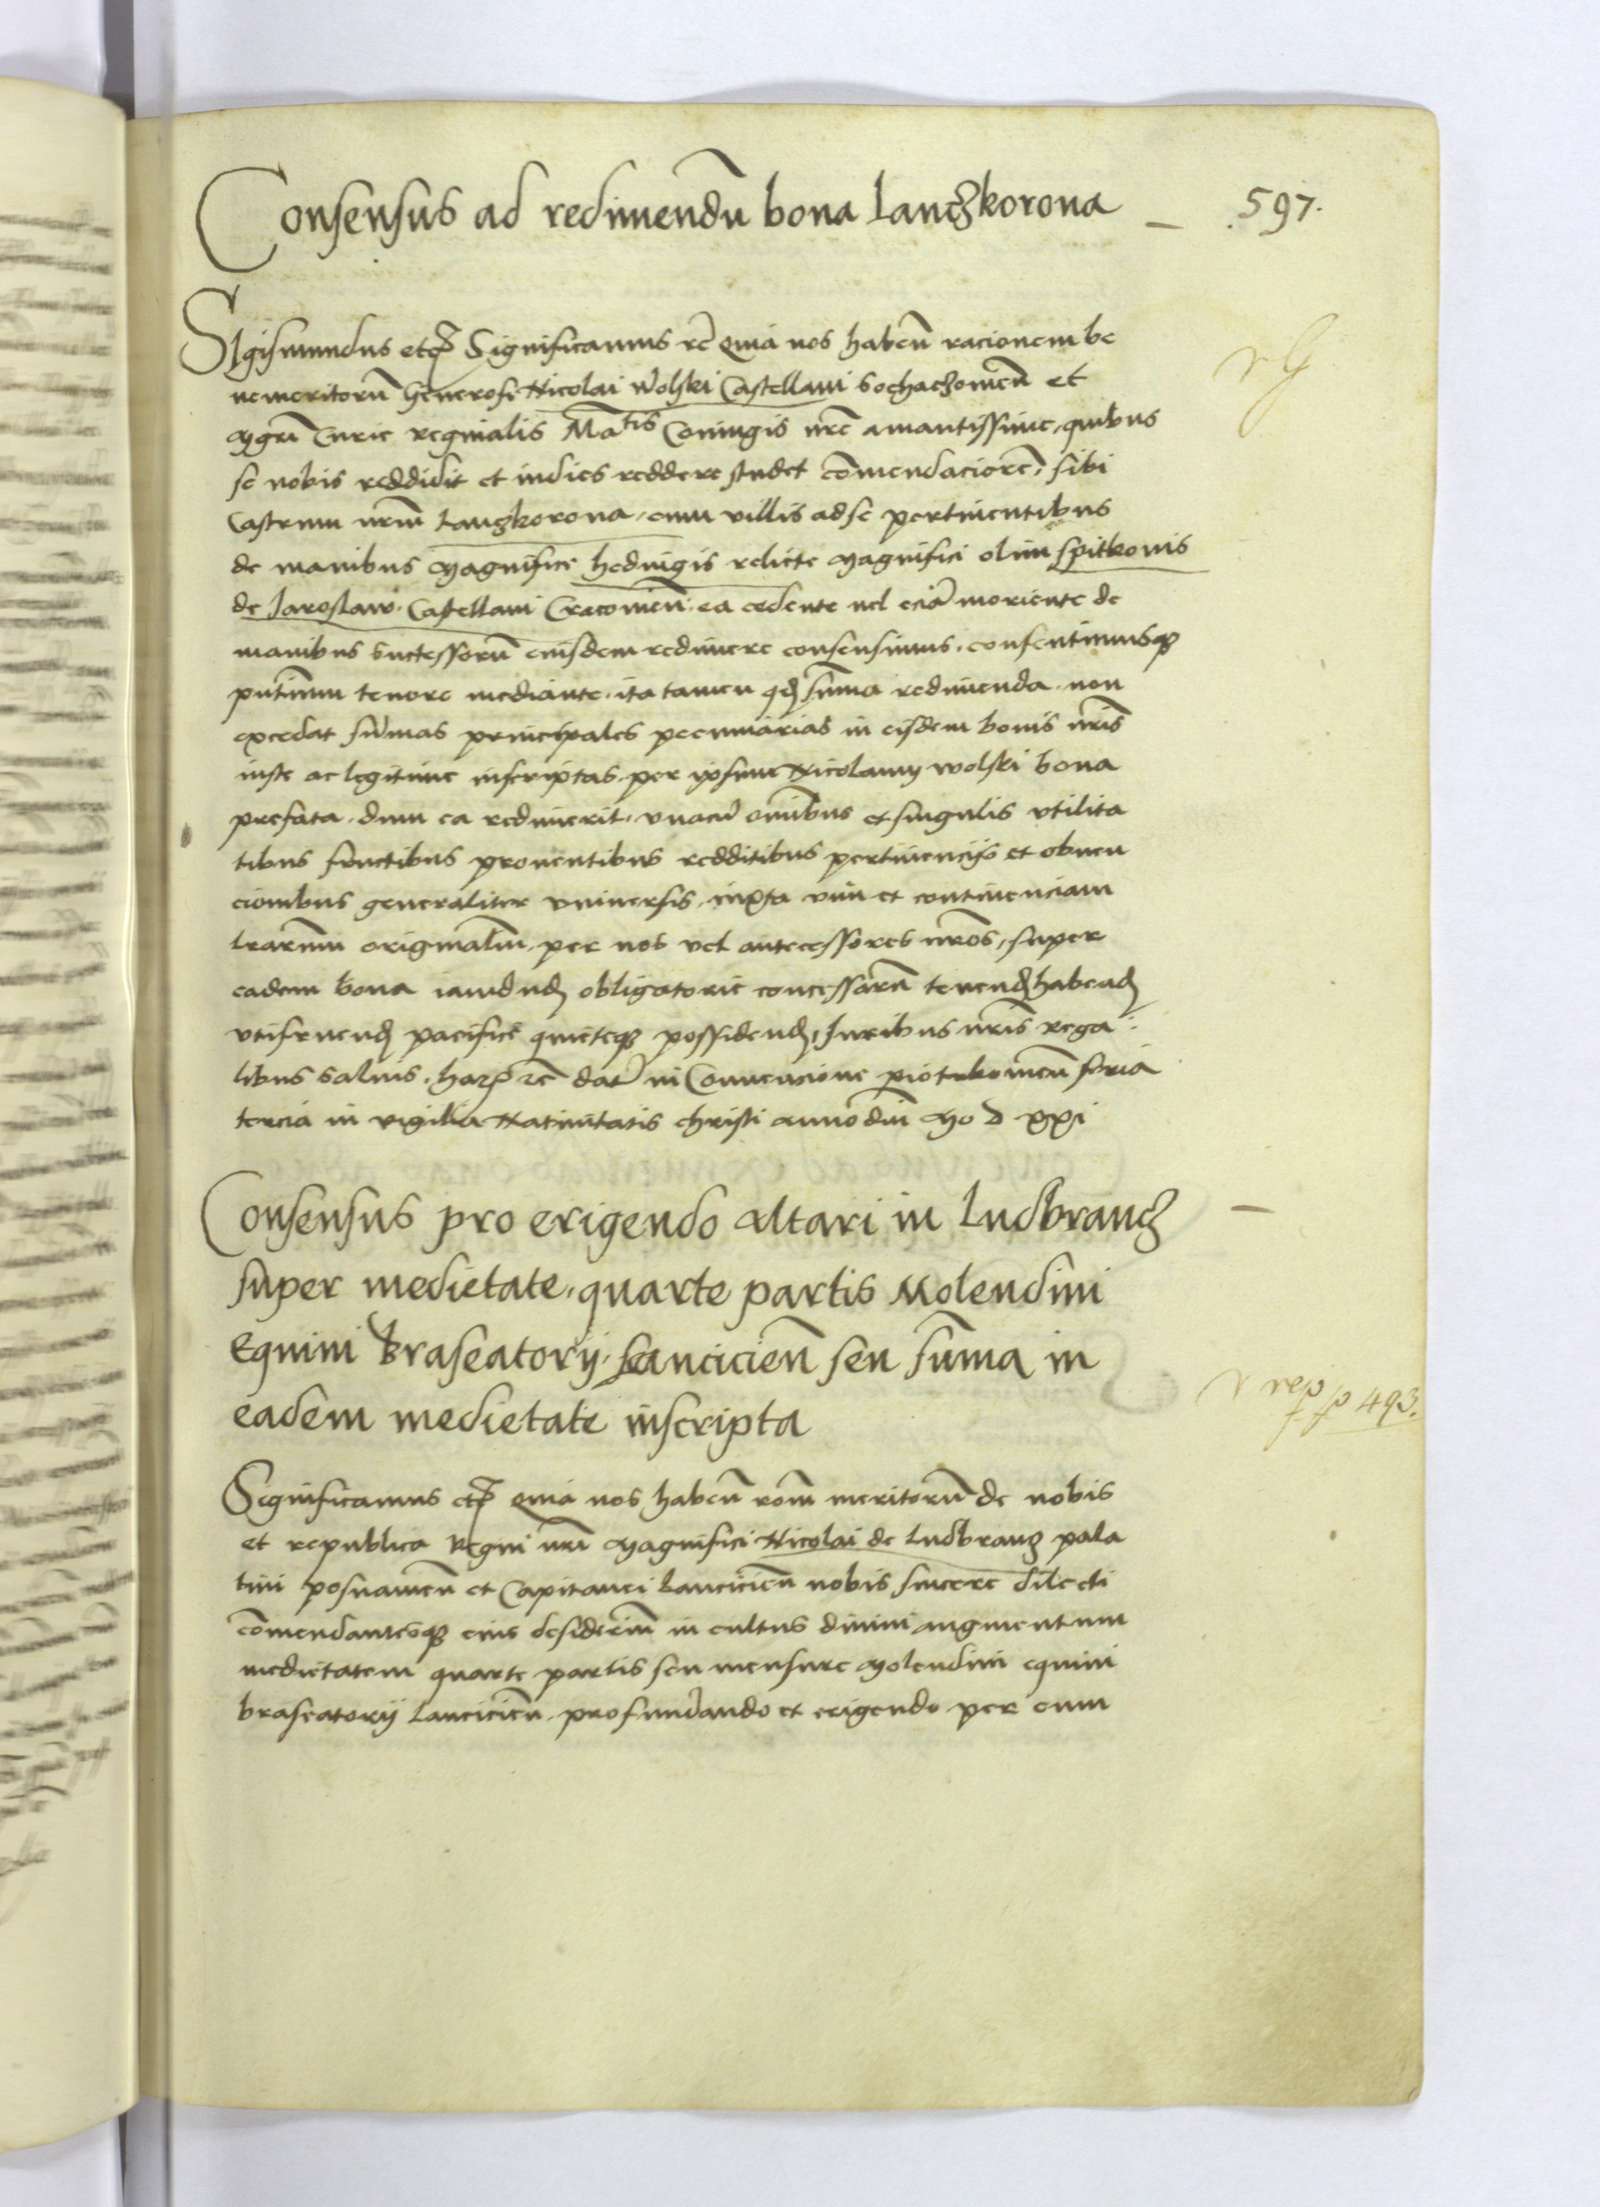 Consensus ad redimendū bona Lanczkorona
597.
SIgismundus etcꝭ Significamus rē Quia nos habeñ racionem be
nemeritorū Generosi Nicolai Wolski Castellani Sochaczowieñ et
Mgrī Curie reginalis Maᵗⁱˢ Coniugis nr̄e amantissime, quibus
se nobis reddidit et indies reddere studet com̄endaciorē, sibi
Castrum nr̄m Lanczkorona, cum villis ad se pertinentibus
de manibus Magnifice hedvigis relicte Magnifici olim Spitkonis
de Jaroslaw. Castellani Cracovieñ. ea cedente vel eciā moriente de
manibus Successorū eiusdem redimere consensimus. consentimusqꝫ
pñtium tenore mediante. ita tamen qđ sum̄a redimenda. non
excedat sum̄as principales pecuniarias in eisdem bonis nr̄is
iuste ac legitime inscriptas. per ipsum Nicolaum wolski bona
prefata. dum ea redimerit. vnacū om̄ibus et singulis vtilita
tibus fructibus proventibus redditibus pertinencijs et obven
cionibus generaliter vniversis. iuxta vim et continenciam
lrārum originaliū. per nos vel antecessores nr̄os, super
eadem bona iamdudꝫ obligatorie concessarū tenendꝫ habendꝫ
vtifruendꝫ pacifice quieteqꝫ possidendꝫ, Iuribus nr̄is rega
libus salvis. harꝝ rē datꝭ in Convencione piotrkovieñ feria
tercia in vigilia Nativitatis christi anno dn̄i Mo D xxi
Consensus pro erigendo altari in Ludbrancz
super medietate, quarte partis Molendini
Equini braseatorij. Lancicieñ seu sum̄a in
eadem medietate inscripta
rep p 493.
Significamus etcꝭ Quia nos habeñ rom̄ meritorū de nobis
et republica Regni nr̄i Magnifici Nicolai de Ludbrancz pala
tini posnanieñ et Capitanei Lancicieñ nobis sincere dilecti
com̄endantesqꝫ eius desideriū in cultus divini augmentum
medietatem quarte partis seu mensure Molendini equini
braseatorij Lancicieñ. pro fundando et erigendo per eum